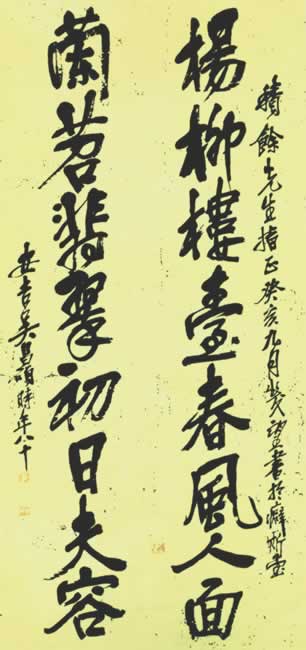 積餘先生指正癸亥九月望書於癖斯堂
楊柳樓臺春風人面
蘭苕翡翠初日夫容
安吉吳昌碩時年八十